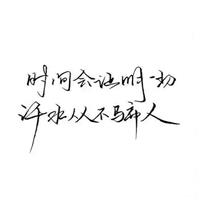 时间会证明一切
汗水从不骗人